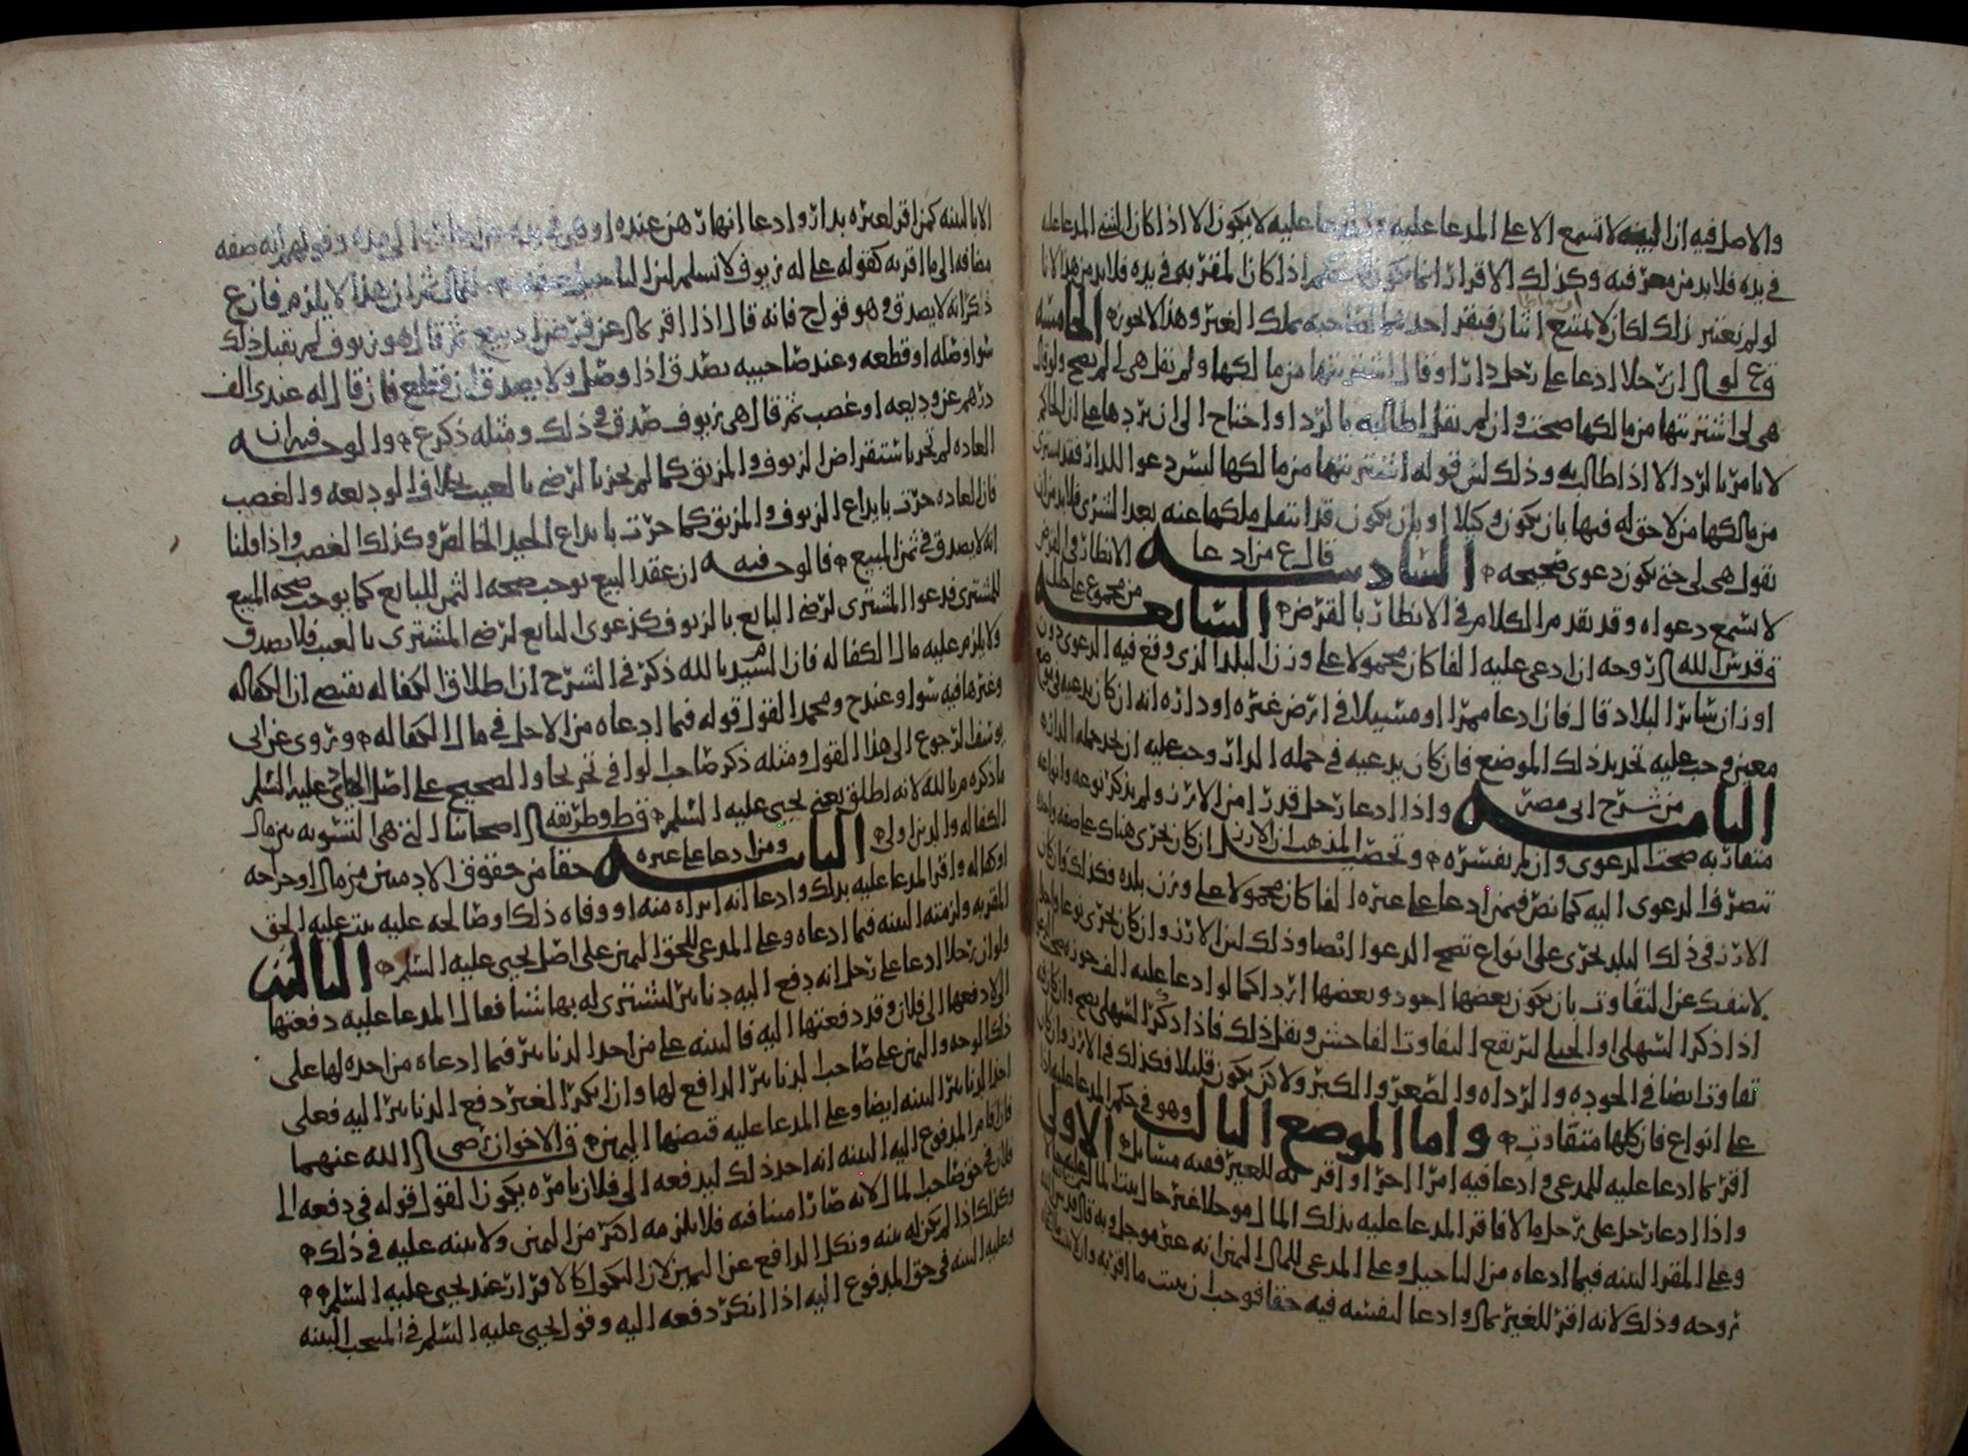 والاصل فيه ان البينه لا تسمع الا على المدعا عليه والمدعا عليه لا يكون الا اذا كان الشي المدعا عليه
في يده فلا بد من معرفته وكذلك الاقرار انما يكون اذا كان المقر به في يده فلا بد من هذا لانا
لو لم نعتبر ذلك لكان لا يمتنع اثنان فيقر احدهما لصاحبه بملك الغير وهذا لا يجوز الخامسه
قال ان رجلا ادعا على رجل دارا وقال اشتريتها من مالكها ولم يقل هي لي لم يصح ولو قال
هي لي اشتريتها من مالكها صحت وان لم يقل اطالبه بالرد او احتاج الى ان يردها على ان الحاكم
لا يامر بالرد الا اذا طالب به وذلك لان قوله اشتريتها من مالكها ليس دعوا للدار فقد يشتري
من مالكها من لا حق له فيها بان يكون وكيلا او بان يكون قد انتقل ملكها عنه بعد الشرى فلا بد من ان
يقول هي لي حتى يكون دعوى صحيحه السادسه قال ع من ادعا الانظار في القرض
لا تسمع دعواه وقد تقدم الكلام في الانظار بالقرض السابعه من مجموع علي خليل
قدس الله روحه ان ادعى عليه الفا كان محمولا على وزن البلد الذي وقع فيه الدعوى دون
اوزان سائر البلاد قال فان ادعا ممرا او مسيلا في ارض غيره او داره انه ان كان يدعيه في موضع
معين وجب عليه تحديد ذلك الموضع فان كان يدعيه في جمله الدار وجب عليه ان يحد جمله الدار
الثامنه من شرح ابي مضر واذا ادعا رجل قدرا من الارز ولم يذكر نوعه وانواعه
متفاوته صحت الدعوى وان لم يفسره وتحصيل المذهب ان الارز ان كان يجري هناك على صفه واحده
تنصرف الدعوى اليه كما نص فيمن ادعا على غيره الفا كان محمولا على وزن بلده فكذلك وان كان
الارز في ذلك البلد يجري على انواع تصح الدعوا ايضا وذلك لان الارز وان كان يجري نوعا واحدا
لا ينفك عن التفاوت بان يكون بعضها اجود وبعضها اردا كما لو ادعا عليه الف جوزه يصح
اذا ذكر السهلي او الجبلي لم يقع التفاوت الفاحش ويقل ذلك فاذا ذكر السهلي يصح وان كان فيه
تفاوت ايضا في الجوده والرداه والصغر والكبر ولا كن يكون قليلا فكذلك في الارز وان كان
على انواع فان كلها متفاوت واما الموضع الثالث وهو في حكم المدعا عليه اذا
اقر بما ادعا عليه للمدعي وادعا فيه امرا اخرا او اقر به للغير ففيه مسائل الاولى
واذا ادعا رجل على رجل مالا فاقر المدعا عليه بذلك المال موجلا غير حال يثبت المال عليه حالا
وعلى المقر البينه فيما ادعاه من التاجيل وعلى المدعي للمال اليمين انه غير موجل وبه قال
روحه وذلك لانه اقر للغير بمال وادعا لنفسه فيه حقا فوجب ان يثبت ما اقر به وان لا
الا بالبينه كمن اقر لغيره بدار وادعا انها رهن عنده او هي في يده
مضافه الى ما اقر به كقوله علي له زيوف لا نسلم لان التاجيل
ذكر انه لا يصدق وهو قول ح فانه قال اذا اقر بمال عن قرض او بيع ثم قال هو زيوف لم يقبل ذلك
سوا وصله او قطعه وعند صاحبيه يصدق اذا وصل ولا يصدق ان قطع فان قال له عندي الف
درهم عن وديعه او غصب ثم قال هي زيوف صدق في ذلك ومثله ذكر ع والوجه فيه ان
العاده لم تجر باستقراض الزيوف والمزبق كما لم يجز بالرضى بالعيب بخلاف الوديعه والغصب
فان العاده جرت بايداع الزيوف والمزبق كما جرت بايداع الجيد الخالص وكذلك الغصب واذا قلنا
انه لا يصدق في ثمن المبيع فالوجه فيه ان عقد البيع يوجب صحه الثمن للبايع كما يوجب صحه المبيع
للمشتري فدعوا المشتري لرضى البايع بالزيوف كدعوى البايع لرضى المشتري بالعيب فلا يصدق
ولا يلزم عليه مال الكفاله فان السيد م بالله ذكر في الشرح ان اطلاق الكفاله يقتضي ان الكفاله
وغيرها فيه سوا وعند ح ومحمد القول قوله فيما ادعاه من الاجل في مال الكفاله وروي عن ابي
يوسف الرجوع الى هذا القول ومثله ذكر صاحب الوافي تخريجا والصحيح على اصل الهادي عليه السلم
ما ذكره م بالله لانه اطلق يعني يحيى عليه السلم قط وطريقه اصحابنا التي هي التسويه بين مال
الكفاله والدين اولى الثانيه ومن ادعا على غيره حقا من حقوق الادميين من مال او جراحه
او كفاله واقر المدعا عليه بذلك وادعا انه ابراه منه او وفاه ذلك او صالحه عليه يثبت عليه الحق
المقر به ولزمته البينه فيما ادعاه وعلى المدعي للحق اليمين على اصل يحيى عليه السلم الثالثه
ولو ان رجلا ادعا على رجل انه دفع اليه دنانير ليشتري له بها شيا فقال المدعا عليه دفعتها
الي لادفعها الى فلان وقد دفعتها اليه فالبينه على من اخذ الدنانير فيما ادعاه من اخذه لها على
ذلك الوجه واليمين على صاحب الدنانير الدافع لها وان انكر الغير دفع الدنانير اليه فعلى
اخذ الدنانير البينه ايضا وعلى المدعا عليه قبضها اليمين ق الاخوان رضي الله عنهما
فان اقام المدفوع اليه البينه انه اخذ ذلك ليدفعه الى فلان بامره يكون القول قوله في دفعه الى
فلان في حق صاحب المال لانه صار امينا فيه فلا يلزمه اكثر من اليمين ولا بينه عليه في ذلك
وكذلك اذا لم يكن له بينه ونكل الدافع عن اليمين لان النكول كالاقرار عند يحيى عليه السلم
وعليه البينه في حق المدفوع اليه اذا انكر دفعه اليه وقول يحيى عليه السلم في المنتخب البينه